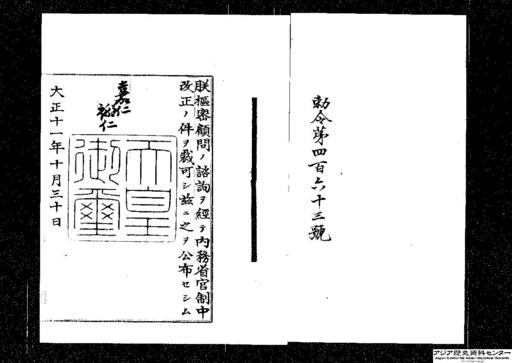 勅令第四百六十三號
朕樞密顧問ノ諮詢ヲ經テ內務省官制中
改正ノ件ヲ裁可シ玆ニ之ヲ公布セシム
嘉仁
裕仁
天皇
御璽
大正十一年十月三十日
アジア歴史資料センター
Japan Center for Asian Historical Records